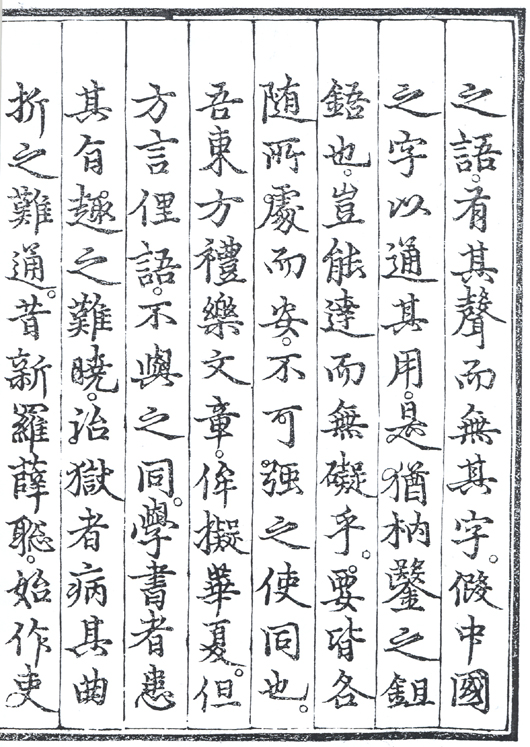 之語。有其聲而無其字。假中國
之字以通其用。是猶枘鑿之鉏
鋙也。豈能達而無礙乎。要皆各
随所處而安。不可强之使同也。
吾東方禮樂文章。侔擬華夏。但
方言俚語。不與之同。學書者患
其旨趣之難曉。治獄者病其曲
折之難通。昔新羅薛聦。始作吏